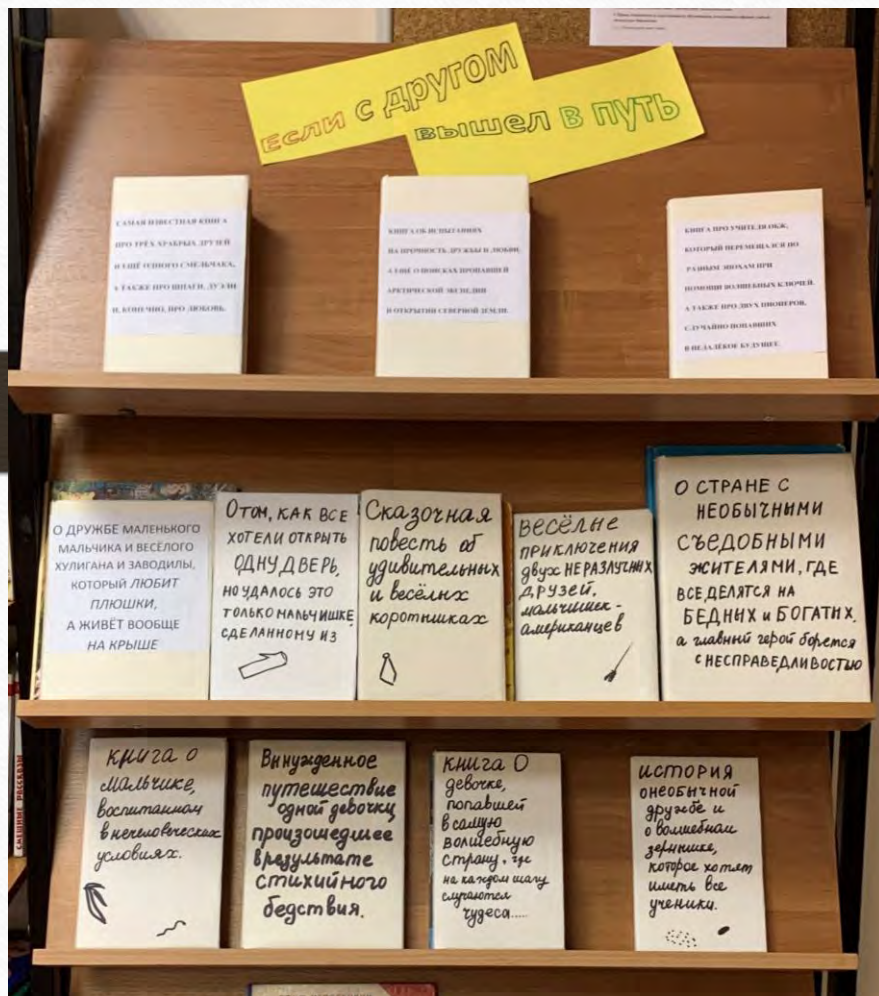 Если с другом
вышел в путь
САМАЯ ИЗВЕСТНАЯ КНИГА
ПРО ТРЁХ ХРАБРЫХ ДРУЗЕЙ
И ЕЩЁ ОДНОГО СМЕЛЬЧАКА,
А ТАКЖЕ ПРО ШПАГИ, ДУЭЛИ
И, КОНЕЧНО, ПРО ЛЮБОВЬ.
КНИГА ОБ ИСПЫТАНИЯХ
НА ПРОЧНОСТЬ ДРУЖБЫ И ЛЮБВИ,
А ЕЩЁ О ПОИСКАХ ПРОПАВШЕЙ
АРКТИЧЕСКОЙ ЭКСПЕДИЦИИ
И ОТКРЫТИИ СЕВЕРНОЙ ЗЕМЛИ.
КНИГА ПРО УЧИТЕЛЯ ОБЖ,
КОТОРЫЙ ПЕРЕМЕЩАЛСЯ ПО
РАЗНЫМ ЭПОХАМ ПРИ
ПОМОЩИ ВОЛШЕБНЫХ КЛЮЧЕЙ.
А ТАКЖЕ ПРО ДВУХ ПИОНЕРОВ,
СЛУЧАЙНО ПОПАВШИХ
В НЕДАЛЁКОЕ БУДУЩЕЕ.
О ДРУЖБЕ МАЛЕНЬКОГО
МАЛЬЧИКА И ВЕСЁЛОГО
ХУЛИГАНА И ЗАВОДИЛЫ,
КОТОРЫЙ ЛЮБИТ
ПЛЮШКИ,
А ЖИВЁТ ВООБЩЕ
НА КРЫШЕ
О ТОМ, КАК ВСЕ
ХОТЕЛИ ОТКРЫТЬ
ОДНУ ДВЕРЬ,
НО УДАЛОСЬ ЭТО
ТОЛЬКО МАЛЬЧИШКЕ,
СДЕЛАННОМУ ИЗ
Сказочная
повесть об
удивительных
и весёлых
коротышках
Весёлые
приключения
двух НЕРАЗЛУЧНЫХ
ДРУЗЕЙ,
мальчишек-
американцев
О СТРАНЕ С
НЕОБЫЧНЫМИ
СЪЕДОБНЫМИ
ЖИТЕЛЯМИ, ГДЕ
ВСЕ ДЕЛЯТСЯ НА
БЕДНЫХ и БОГАТЫХ,
а главный герой борется
С НЕСПРАВЕДЛИВОСТЬЮ
Книга о
мальчике,
воспитанном
в нечеловеческих
условиях.
Вынужденное
путешествие
одной девочки
произошедшее
в результате
стихийного
бедствия.
Книга О
девочке,
попавшей
в самую
волшебную
страну, где
на каждом шагу
случаются
чудеса.....
ИСТОРИЯ
о необычной
дружбе и
о волшебном
зёрнышке,
которое хотят
иметь все
ученики.
СМЕШНЫЕ РАССКАЗЫ